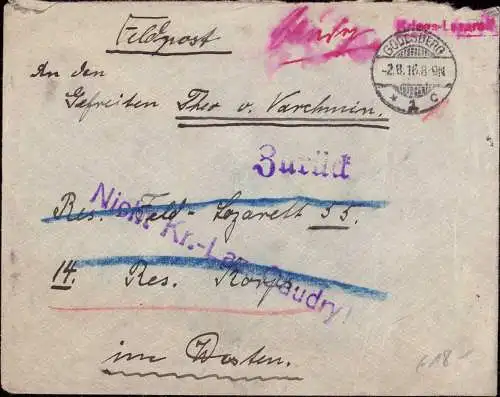 Feldpost
Caudry
Kriegs-Lazarett
GODESBERG
-2.8.16.8-9N
* 1 c
An den
Gefreiten Theo v. Varchmin.
Zurück
Res. Feld-Lazarett 55.
Nicht Kr.-Laz. Caudry!
14. Res. Korps.
im Westen.